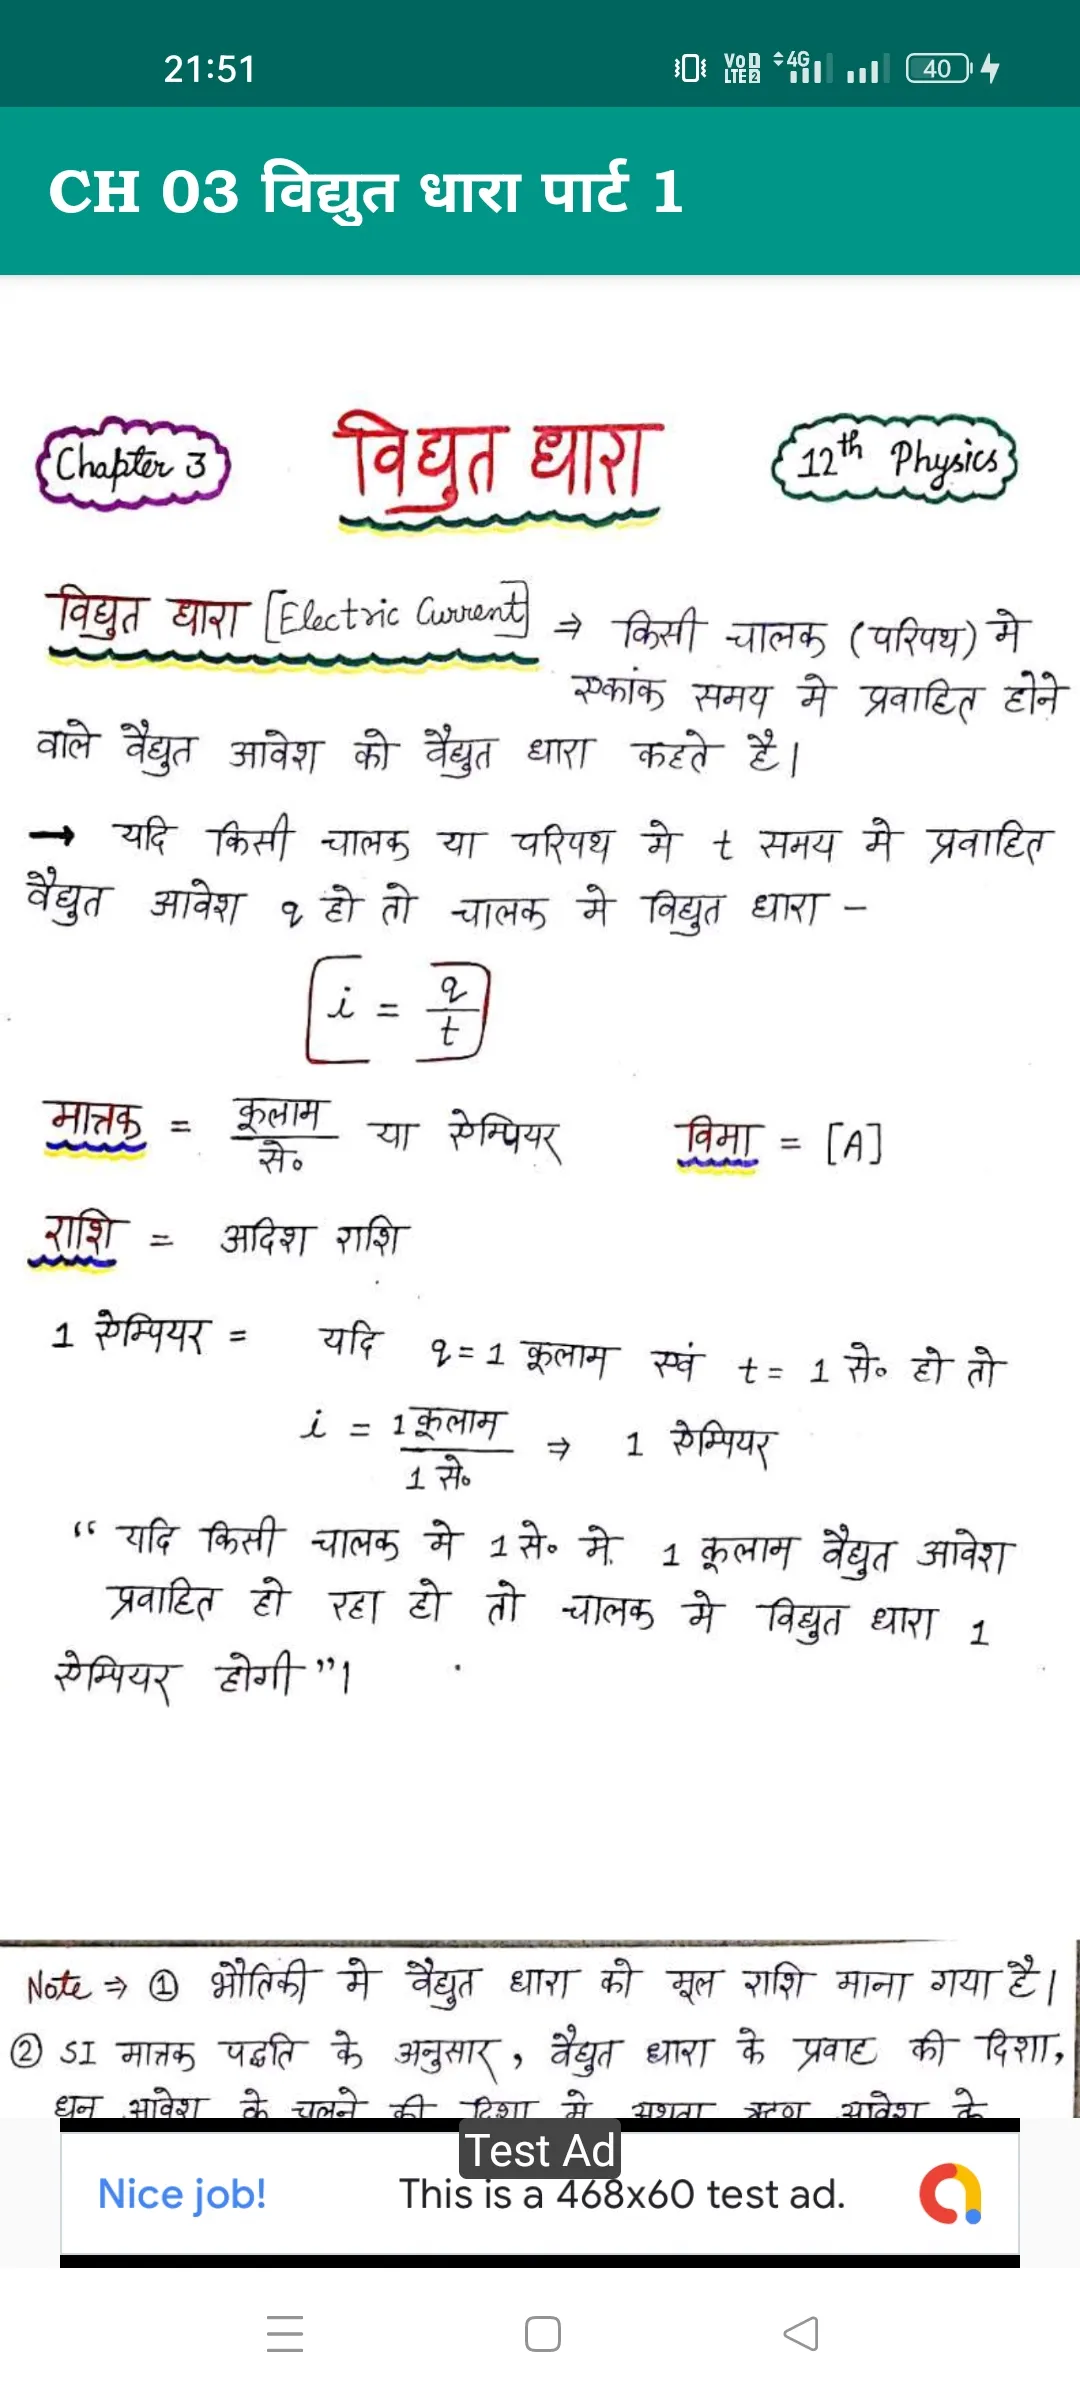 21:51
Vo 1 LTE 2 4G 40
CH 03 विद्युत धारा पार्ट 1
Chapter 3 विद्युत धारा 12th Physics
विद्युत धारा [Electric Current] ⇒ किसी चालक (परिपथ) मे
एकांक समय मे प्रवाहित होने
वाले वैद्युत आवेश को वैद्युत धारा कहते है।
→ यदि किसी चालक या परिपथ मे t समय मे प्रवाहित
वैद्युत आवेश q हो तो चालक मे विद्युत धारा -
[i = q/t]
मात्रक = कूलाम/से० या ऐम्पियर विमा = [A]
राशि = अदिश राशि
1 ऐम्पियर = यदि q = 1 कूलाम एवं t = 1 से० हो तो
i = 1 कूलाम/1 से० ⇒ 1 ऐम्पियर
“ यदि किसी चालक मे 1 से० में 1 कूलाम वैद्युत आवेश
प्रवाहित हो रहा हो तो चालक मे विद्युत धारा 1
ऐम्पियर होगी ”।
Note ⇒ ① भौतिकी मे वैद्युत धारा को मूल राशि माना गया है।
② SI मात्रक पद्धति के अनुसार, वैद्युत धारा के प्रवाह की दिशा,
धन आवेश के चलने की दिशा मे अथवा ऋण आवेश के
Test Ad
Nice job! This is a 468x60 test ad.